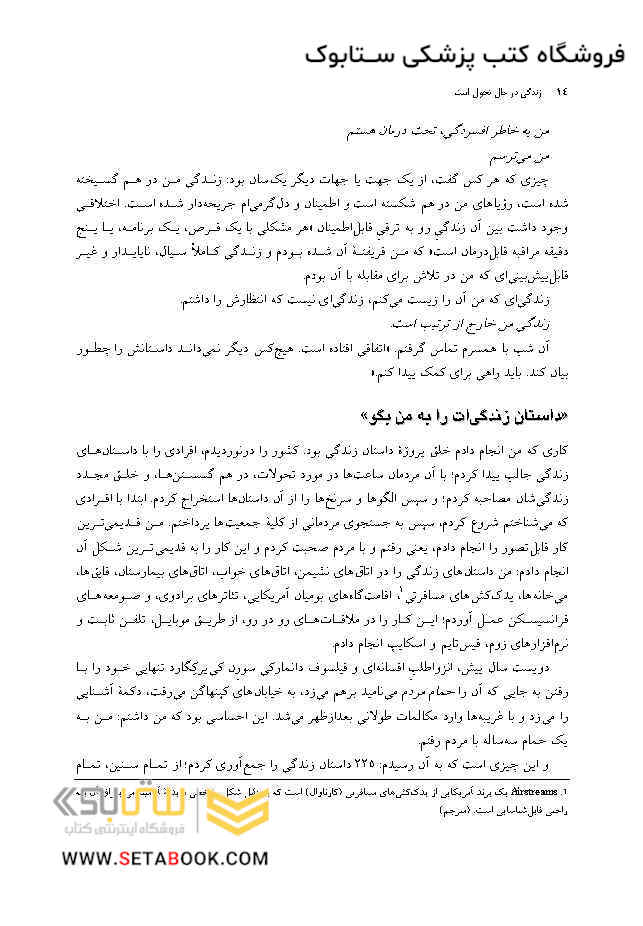 فروشگاه کتب پزشکی ستابوک
١٤ زندگی در حال تحول است
من به خاطر افسردگی، تحت درمان هستم
من می‌ترسم
چیزی که هر کس گفت، از یک جهت یا جهات دیگر یک‌سان بود: زندگی من در هم گسیخته
شده است، رؤیاهای من در هم شکسته است و اطمینان و دل‌گرمی‌ام جریحه‌دار شده است. اختلافی
وجود داشت بین آن زندگیِ رو به ترقیِ قابل‌اطمینان «هر مشکلی با یک قرص، یک برنامه، یا پنج
دقیقه مراقبه قابل‌درمان است» که من فریفتهٔ آن شده بودم و زندگی کاملاً سیال، ناپایدار و غیر
قابل‌پیش‌بینی‌ای که من در تلاش برای مقابله با آن بودم.
زندگی‌ای که من آن را زیست می‌کنم، زندگی‌ای نیست که انتظارش را داشتم.
زندگی من خارج از ترتیب است.
آن شب با همسرم تماس گرفتم. «اتفاقی افتاده است. هیچ‌کس دیگر نمی‌داند داستانش را چطور
بیان کند. باید راهی برای کمک پیدا کنم.»
«داستان زندگی‌ات را به من بگو»
کاری که من انجام دادم خلق پروژهٔ داستان زندگی بود. کشور را درنوردیدم، افرادی را با داستان‌های
زندگی جالب پیدا کردم؛ با آن مردمان ساعت‌ها در مورد تحولات، در هم گسستن‌ها، و خلق مجدد
زندگی‌شان مصاحبه کردم؛ و سپس الگوها و سرنخ‌ها را از آن داستان‌ها استخراج کردم. ابتدا با افرادی
که می‌شناختم شروع کردم، سپس به جستجوی مردمانی از کلیهٔ جمعیت‌ها پرداختم. من قدیمی‌ترین
کار قابل‌تصور را انجام دادم، یعنی رفتم و با مردم صحبت کردم و این کار را به قدیمی‌ترین شکل آن
انجام دادم: من داستان‌های زندگی را در اتاق‌های نشیمن، اتاق‌های خواب، اتاق‌های بیمارستان، قایق‌ها،
می‌خانه‌ها، یدک‌کش‌های مسافرتی١، اقامت‌گاه‌های بومیان آمریکایی، تئاترهای برادوی، و صومعه‌های
فرانسیسکن عمل آوردم؛ این کار را در ملاقات‌های رو در رو، از طریق موبایل، تلفن ثابت و
نرم‌افزارهای زوم، فیس‌تایم و اسکایپ انجام دادم.
دویست سال پیش، انزواطلبِ افسانه‌ای و فیلسوف دانمارکی سورن کی‌یرکگارد تنهایی خود را با
رفتن به جایی که آن را حمام مردم می‌نامید برهم می‌زد، به خیابان‌های کپنهاگن می‌رفت، دکمهٔ آشنایی
را می‌زد و با غریبه‌ها وارد مکالمات طولانی بعدازظهر می‌شد. این احساسی بود که من داشتم: من به
یک حمام سه‌ساله با مردم رفتم.
و این چیزی است که به آن رسیدم: ٢٢٥ داستان زندگی را جمع‌آوری کردم؛ از تمام سنین، تمام
1. Airstreams یک برند آمریکایی از یدک‌کش‌های مسافرتی (کاراوان) است که
راحتی قابل‌شناسایی است. (مترجم)
ستابوک
فروشگاه اینترنتی کتاب
WWW.SETABOOK.COM